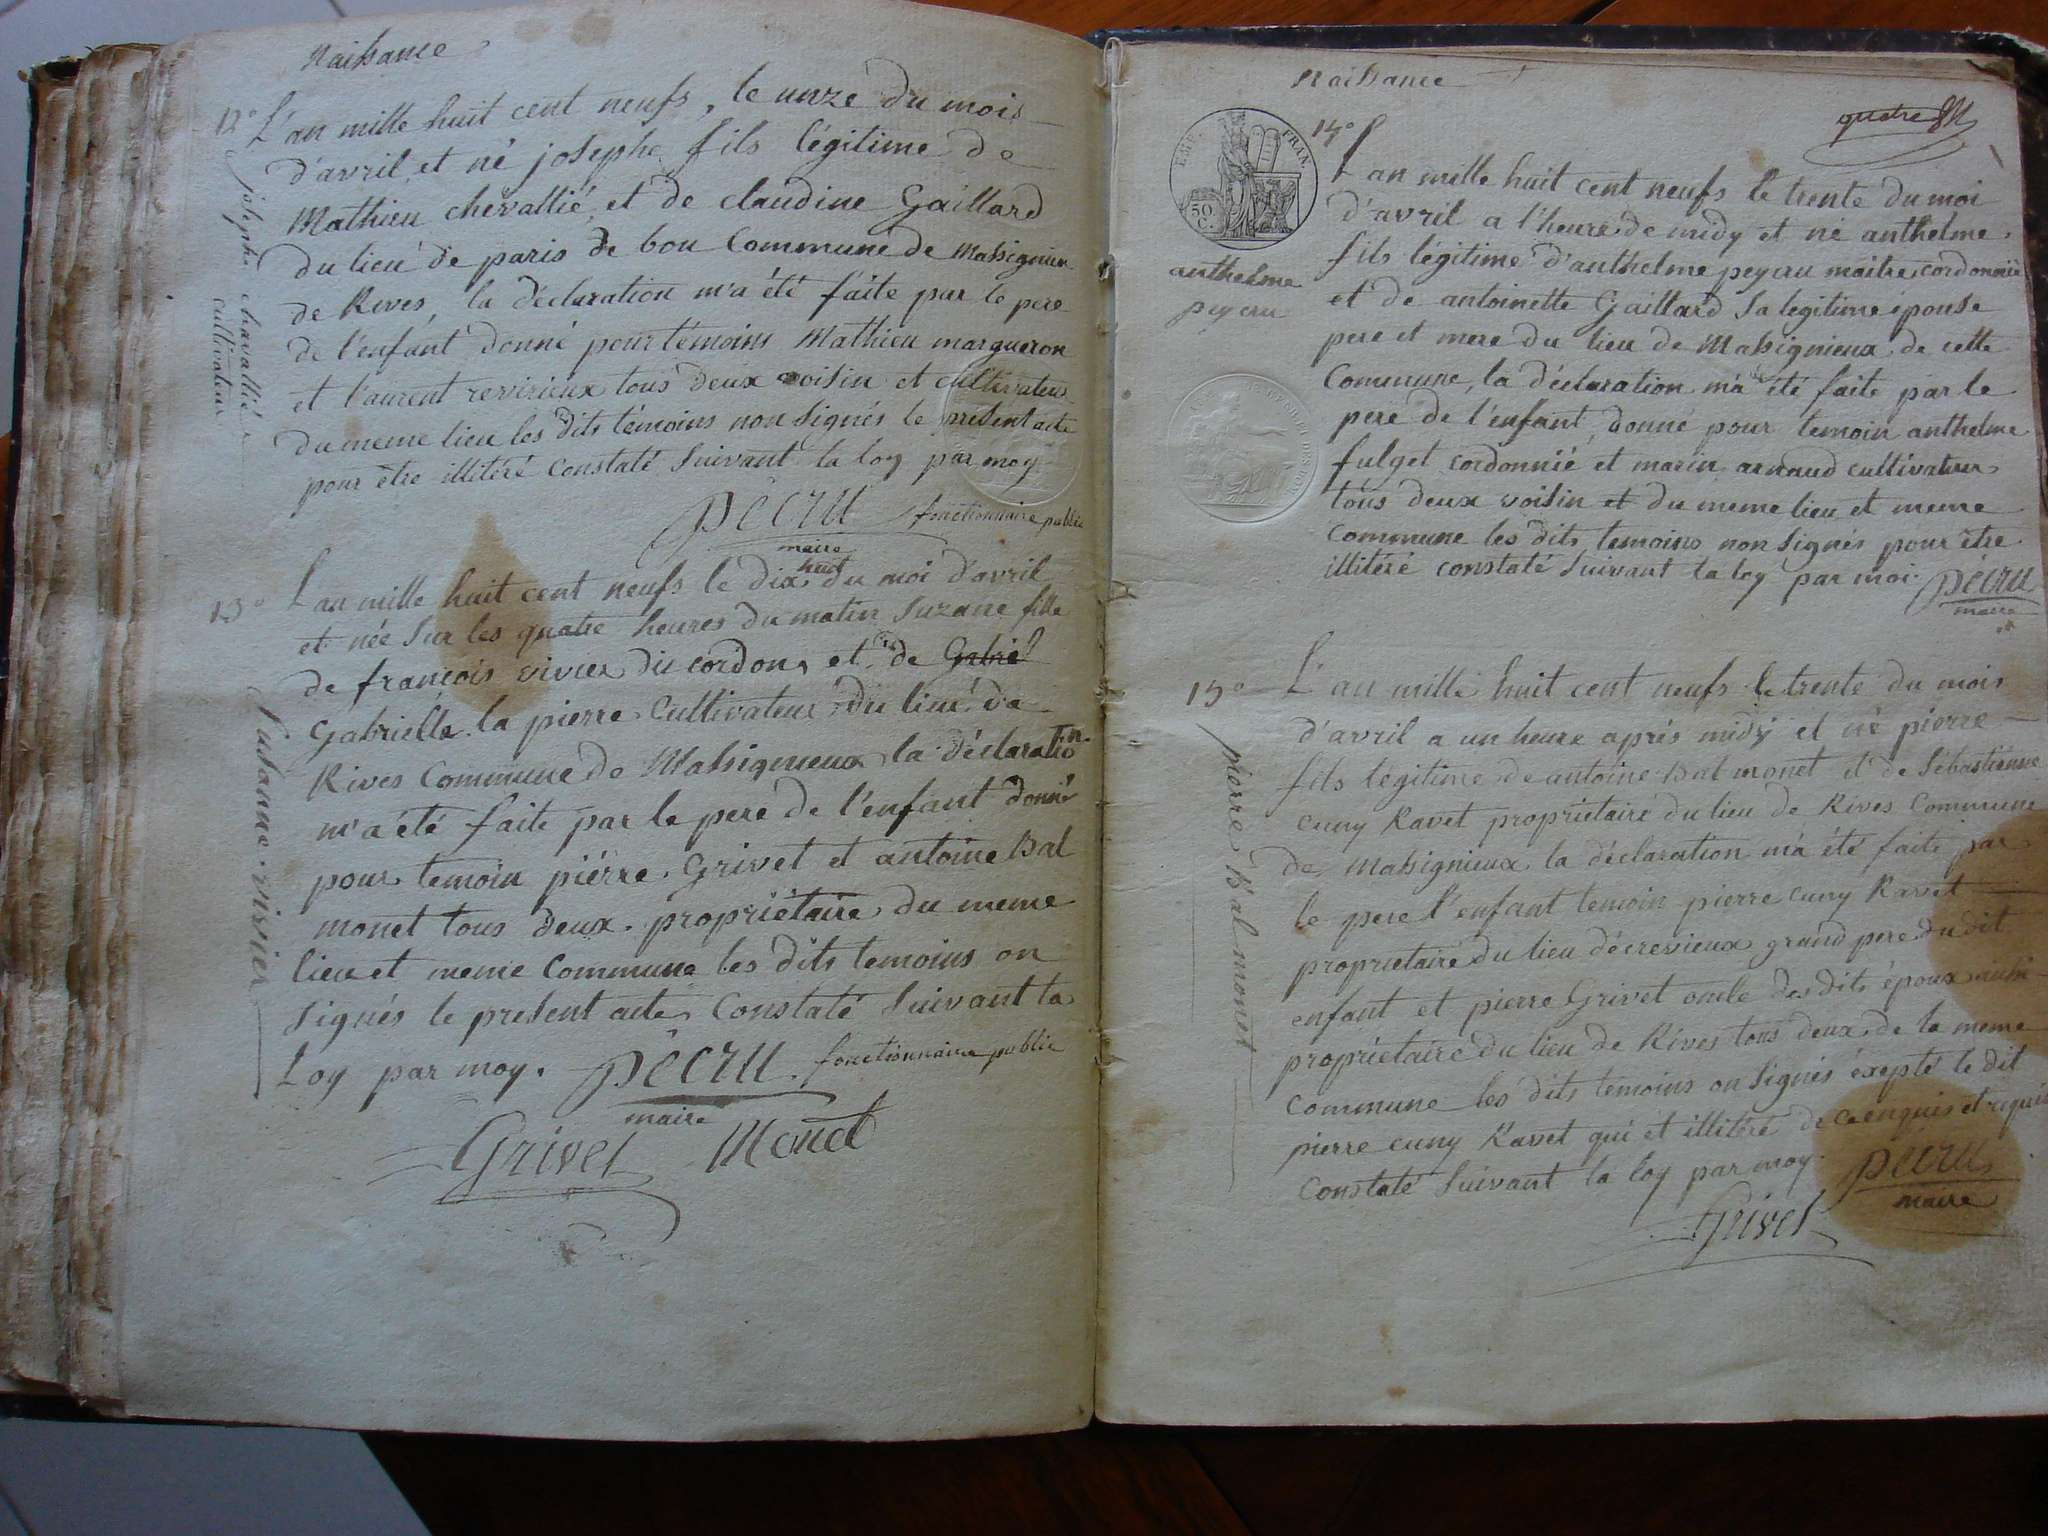 Naissance
12o L'an mille huit cent neufs, le unze du mois
d'avril et né josephe fils légitime de
Mathieu chevallié et de claudine Gaillard
du lieu de paris de bou Commune de Massignieu
de Rives, la déclaration m'a été faite par le pere
de l'enfant donné pour témoins Mathieu margueron
et l'aurent revirieux tous deux voisin et cultivateur
du meme lieu les dits témoins non signés le present acte
pour être illitéré Constaté suivant la loy par moy
pécru fonctionnaire public
maire
josephe chavallié
cultivateur
13o L'an mille huit cent neufs le dix huit du moi d'avril
et née sur les quatre heures du matin Suzane fille
de francois vivier du cordon et de Gabriel
Gabrielle la pierre Cultivateur du lieu de
Rives Commune de Massignieux la déclaration
m'a été faite par le pere de l'enfant donné
pour temoin piérre Grivet et antoine Bal
monet tous deux propriétaire du meme
lieu et meme Commune les dits temoins on
signés le present acte Constaté suivant la
Loy par moy. pécru. fonctionnaire public
maire
Grivet Monet
Susanne vivier
Naissance
quatre
EMP. FRAN.
50 C.
14o L'an mille huit cent neufs le trente du moi
d'avril a l'heure de midy et né anthelme
fils légitime d'anthelme peycru maitre cordonnié
et de antoinette Gaillard sa legitime épouse
pere et mere du lieu de Massignieux de cette
Commune, la déclaration m'a été faite par le
pere de l'enfant, donne pour temoin anthelme
fulget cordonnié et marin arnaud cultivateur
tous deux voisin et du meme lieu et meme
Commune les dits temoins non signés pour être
illitéré constaté suivant la loy par moi. pécru
maire
anthelme
peycru
15o L'an mille huit cent neufs le trente du mois
d'avril a un heure aprés midy et né pierre
fils légitime de antoine Bal monet et de Sébastienne
cuny Ravet propriétaire du lieu de Rives Commune
de Massignieux la déclaration m'a été faite par
le pere l'enfant temoin pierre cuny Ravet
propriétaire du lieu décrevieux grand pere du dit
enfant et pierre Grivet oncle des dits époux aussi
propriétaire du lieu de Rives tous deux de la meme
Commune les dits temoins on signés éxepté le dit
pierre cuny Ravet qui et illitéré de ce enquis et requis
Constaté suivant la loy par moy. pécru
maire
Grivet
pierre Bal monet